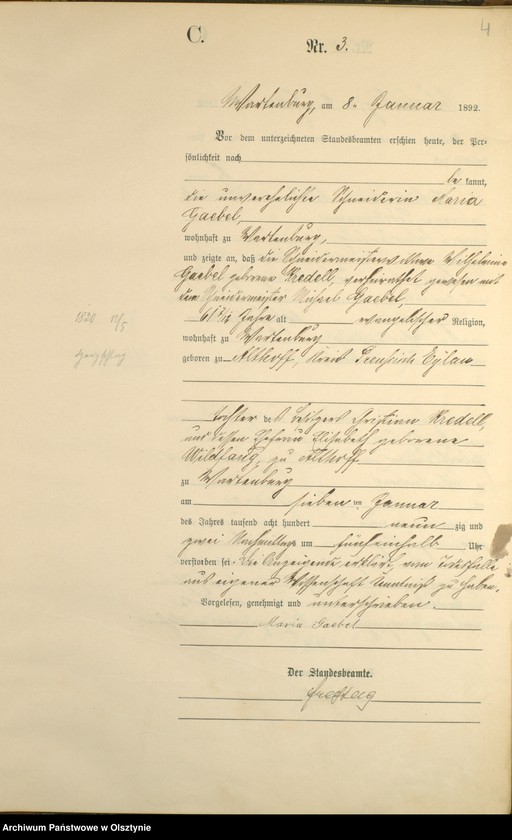 4
C.
Nr. 3.
Wartenburg, am 8. Januar 1892.
Vor dem unterzeichneten Standesbeamten erschien heute, der Per-
sönlichkeit nach
be kannt,
die unverehelichte Schneiderin Maria
Gaebel,
wohnhaft zu Wartenburg,
und zeigte an, daß die Schneidermeisters Wilhelmine
Gaebel geborene Kredell, verheirathet gewesen mit
dem Schneidermeister Michael Gaebel,
Jahre alt evangelischer Religion,
wohnhaft zu Wartenburg
geboren zu Althoff, Kreis Preußisch Eylau
Tochter des Besitzers Christian Kredell,
und dessen Ehefrau Elisabeth geborene
Wildfang, zu Althoff
zu Wartenburg
am sieben ten Januar
des Jahres tausend acht hundert neun zig und
zwei Nachmittags um fünfeinhalb Uhr
verstorben sei. Die Anzeigende erklärt, vom Todesfalle
aus eigener Wissenschaft Kenntniß zu haben.
Vorgelesen, genehmigt und unterschrieben.
Maria Gaebel
Der Standesbeamte.
Freytag
1820
Archiwum Państwowe w Olsztynie